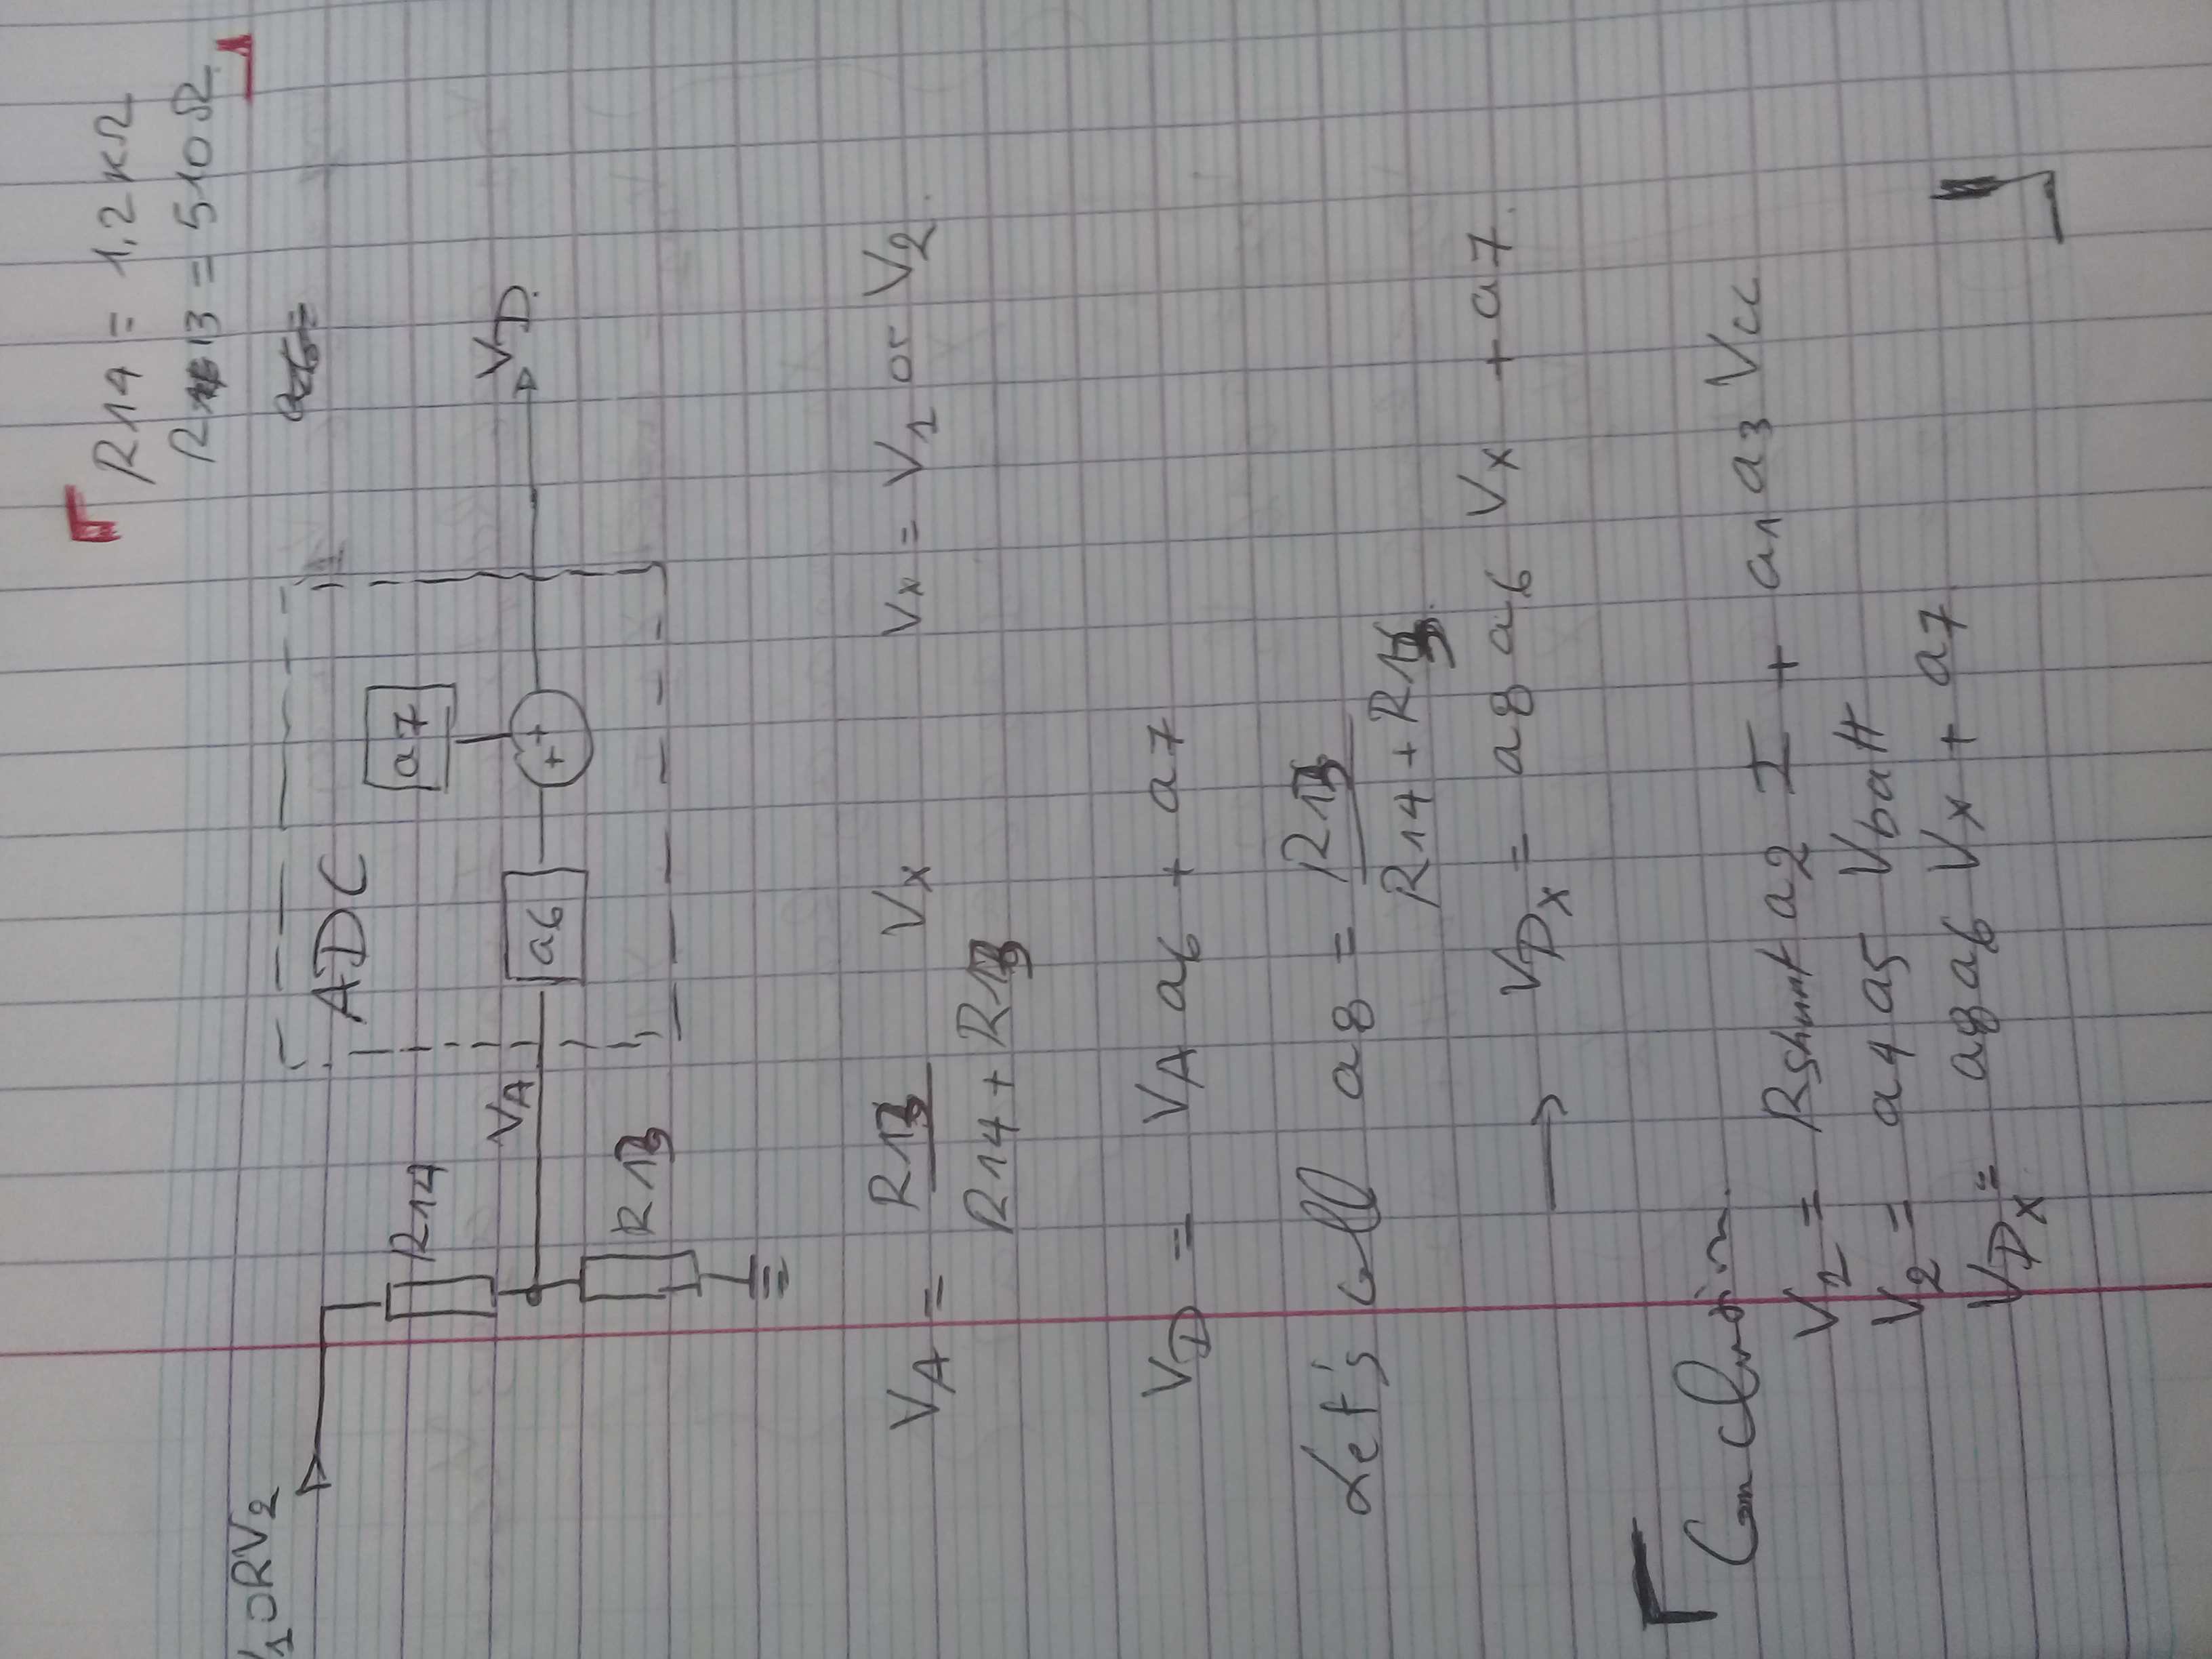 R14 = 1,2 KΩ
R13 = 510 Ω
V1 OR V2
ADC
R14
a7
VA
a6
+ +
VD
R13
VA = R13 / R14 + R13 Vx Vx = V1 or V2.
VD = VA a6 + a7
Let's call a8 = R13 / R14 + R13.
→ VDx = a8 a6 Vx + a7.
Conclusion.
V1 = Rshunt a2 I + a1 a3 Vcc
V2 = a4 a5 Vbatt
VDx = a8 a6 Vx + a7